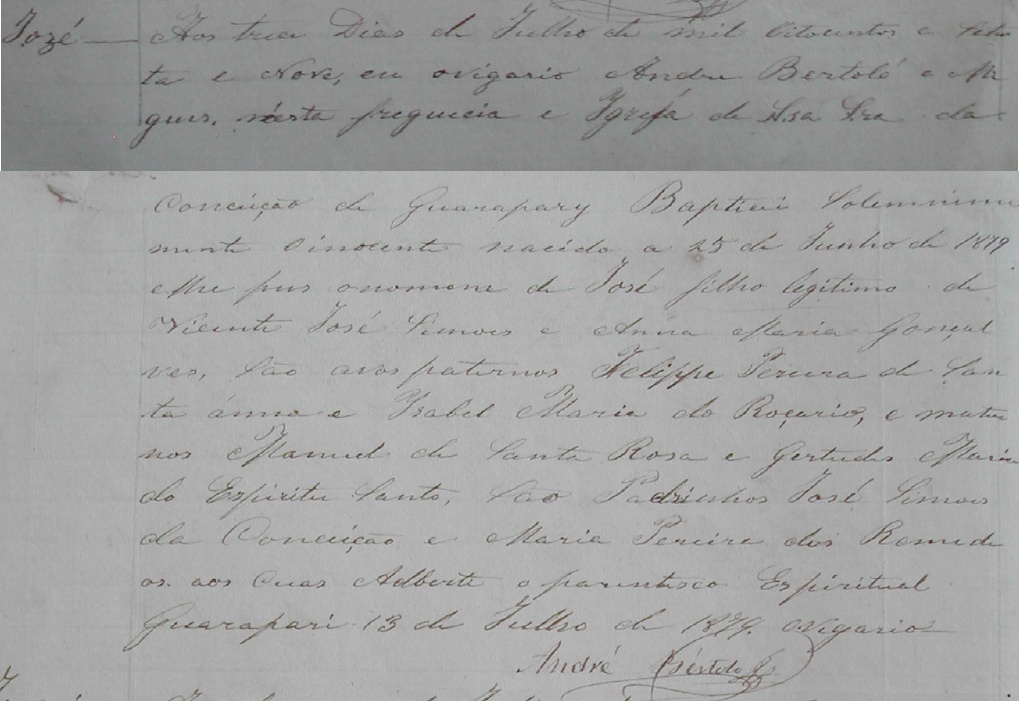 Jozé — Aos trese Dias de Julho de mil Oitocentos e Seten
ta e Nove, eu ovigario Andre Bertoló e Me
gius, nésta freguicia e Igreja de Nsa Sra da
Conceição de Guarapary Baptizei Solemnime
mente oinocente nacido a 25 de Junho de 1879
elhe pus onomem de José filho legitimo de
Vicente José Simois e Anna Maria Gonçal
ves, São avos paternos Felippe Pereira de San
ta ánna e Ysabel Maria do Roçario, e mater
nos Manuel de Santa Rosa e Gertudes Maria
do Espiritu Santo, São Padrinhos José Simois
da Conceição e Maria Pereira dos Remedi
os. aos cuas Adberti o parentisco Espiritual
Guarapari 13 de Julho de 1879. ovigario
André Bértolo